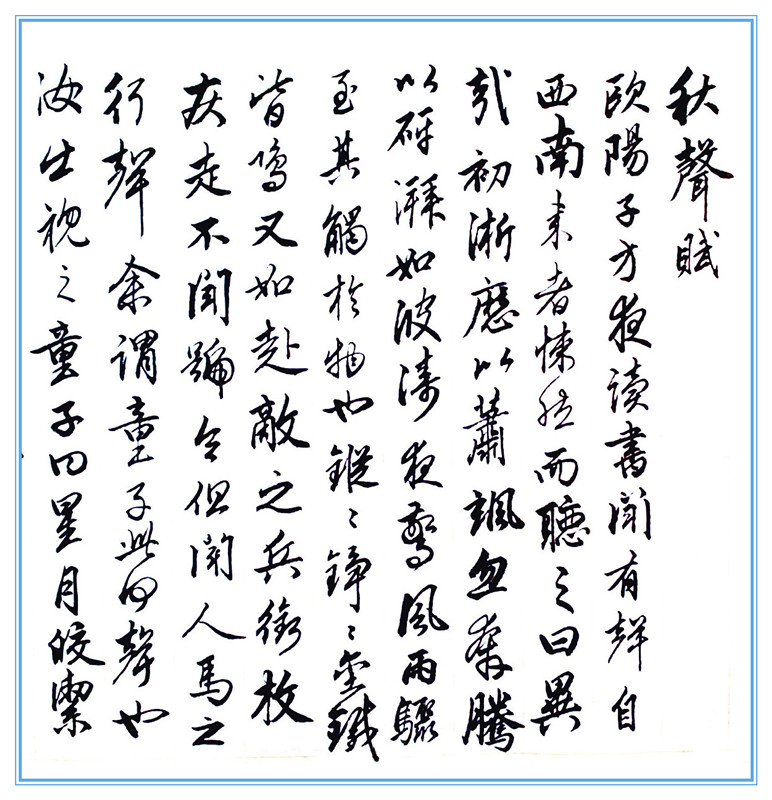 秋聲賦
歐陽子方夜读書闻有聲自
西南来者悚然而聽之曰異
哉初淅瀝以蕭颯忽奔騰
以砰湃如波涛夜驚風雨驟
至其觸於物也鏦〻錚〻金鐵
皆鳴又如赴敵之兵銜枚
疾走不闻號令但闻人馬之
行聲余謂童子此何聲也
汝出視之童子曰星月皎潔